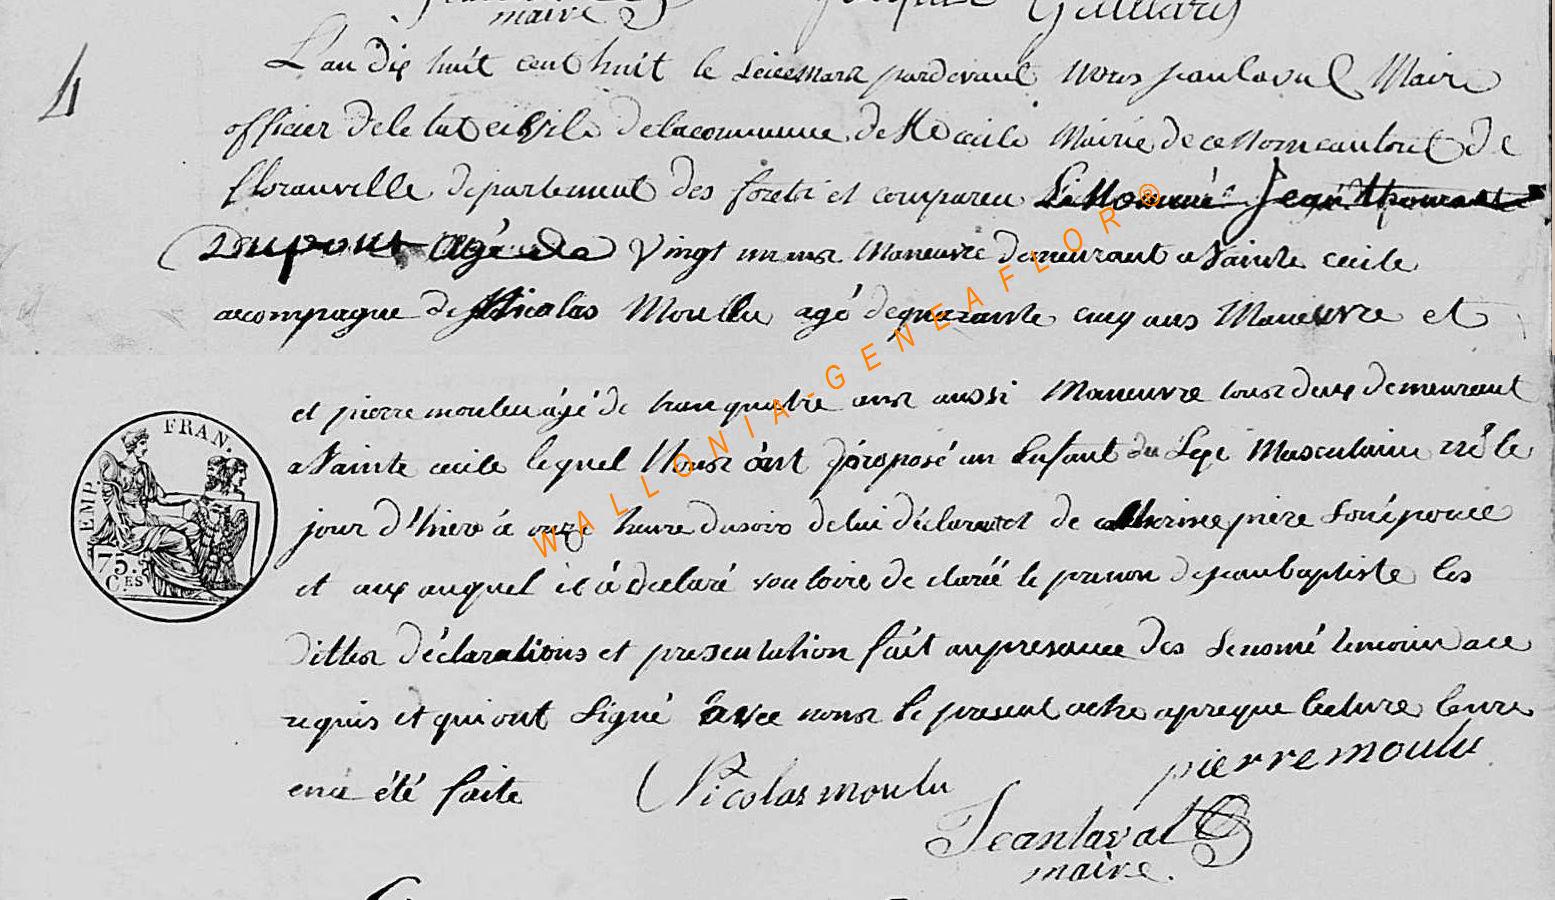 maire
4
L'an dix huit cent huit le seice mars pardevant nous jean laval Maire
officier de le tat civile de la commune de Ste cecile Mairie de ce nom canton de
floranville departement des forets est compareu le Nommé Jean thomas
Dupont agé de vingt un ans Maneuvre demeurant a sainte cecile
accompagne de Nicolas Moullu agé de quarante cinq ans Maneuvre et
et pierre moulu agé de tran quatre ans aussi Maneuvre tous deux demeurant
a sainte cecile lequel Nous ant proposé un Enfant du sexe Masculain né le
jour d'hiere à onze heure du soire de lui déclarant et de catherine piere son épouce
et aux auquel il à déclaré vouloire declaréé le prenon de jean baptiste les
dittes déclarations et presentation fait an presance des denomé temoins a ce
requis et qui ont signé avec nous le present acte apres que lecture leure
en à été faite
Nicolas moulu
pierre moulu
Jean laval
maire.
EMP. FRAN.
75. CES
WALLONIA-GENEAFLOR®